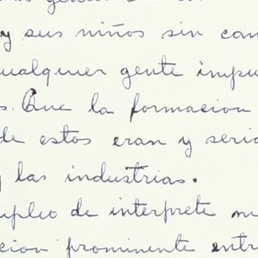 y sus niños sin
cualquier gente
s. Que la formacion
de estos eran y
y las industrias.
de interprete
cion prominente